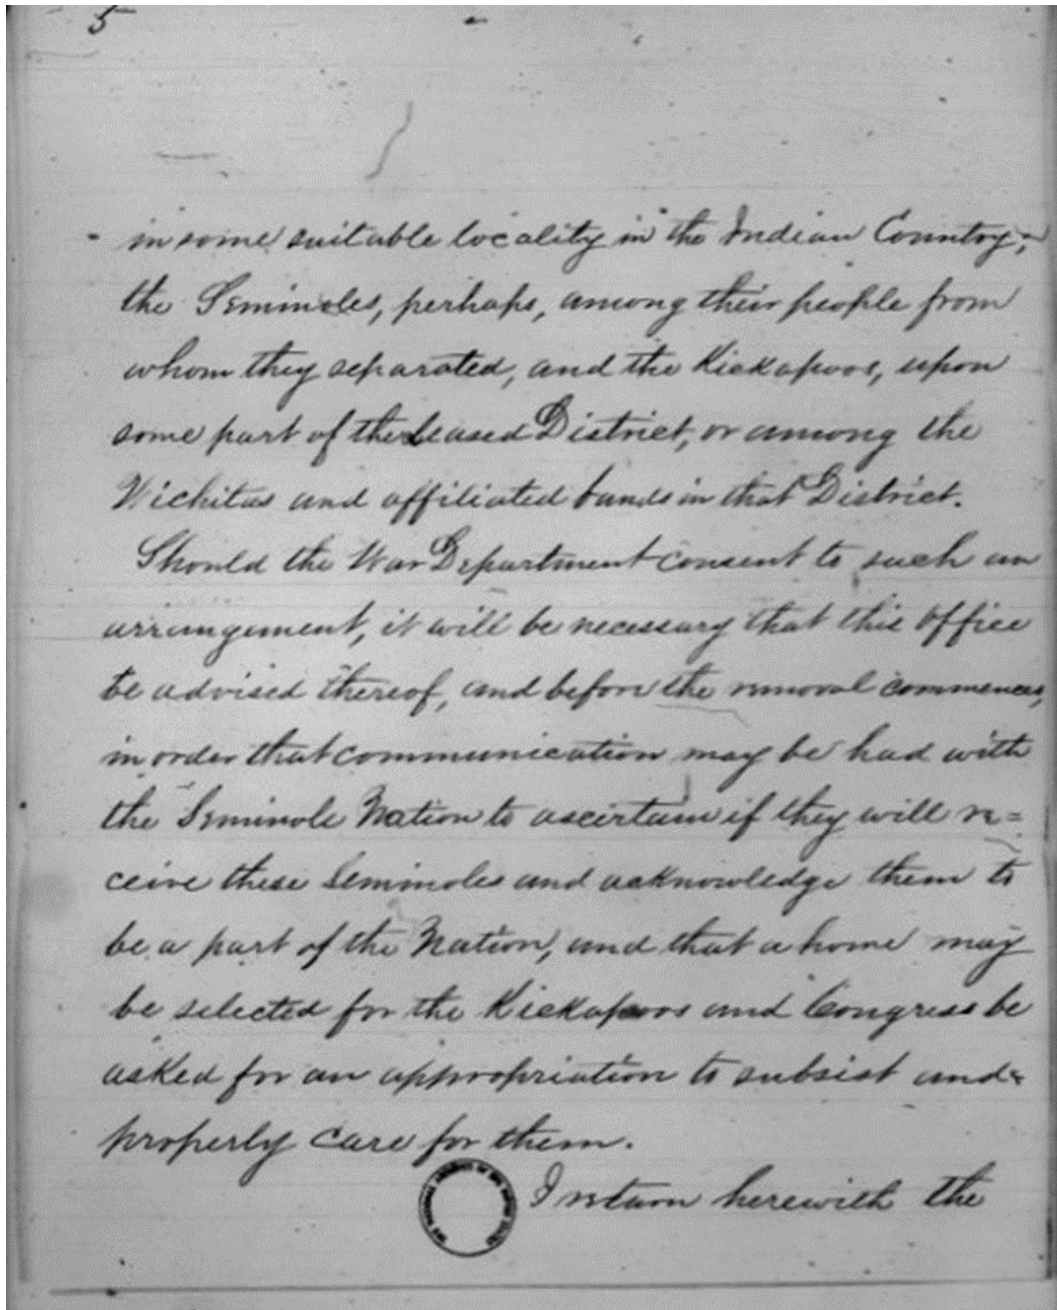 5
in some suitable locality in the Indian Country,
the Seminoles, perhaps, among their people from
whom they separated, and the Kickapoos, upon
some part of the Leased District, or among the
Wichitas and affiliated bands in that District.
Should the War Department consent to such an
arrangement, it will be necessary that this office
be advised thereof, and before the removal commences,
in order that communication may be had with
the Seminole Nation to ascertain if they will re=
ceive these Seminoles and acknowledge them to
be a part of the Nation, and that a home may
be selected for the Kickapoos and Congress be
asked for an appropriation to subsist and
properly care for them.
I return herewith the
THE NATIONAL ARCHIVES OF THE UNITED STATES